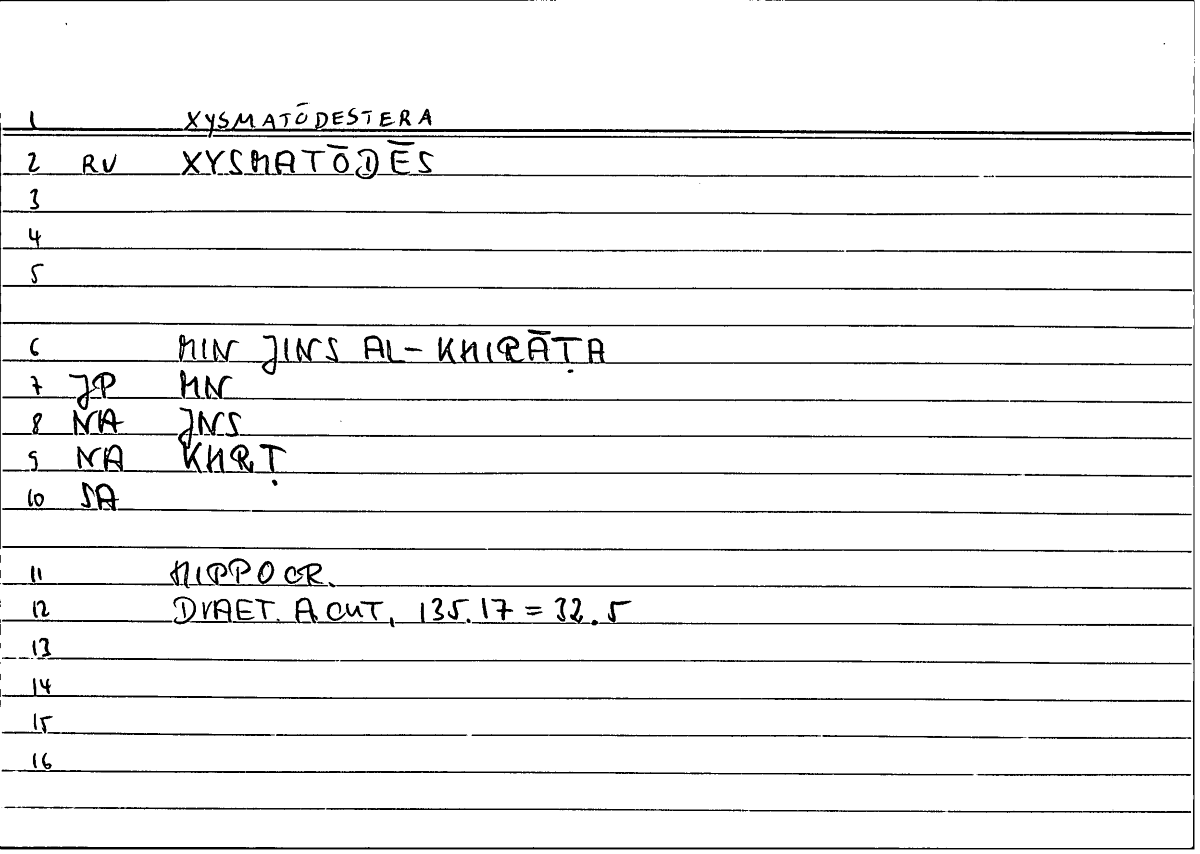 1 XYSMATŌDESTERA
2 RV XYSMATŌDĒS
3
4
5
6 MIN JINS AL-KHIRĀṬA
7 JP MN
8 NA JNS
9 NA KHRṬ
10 SA
11 HIPPOCR.
12 DIAET. ACUT, 135.17 = 32.5
13
14
15
16